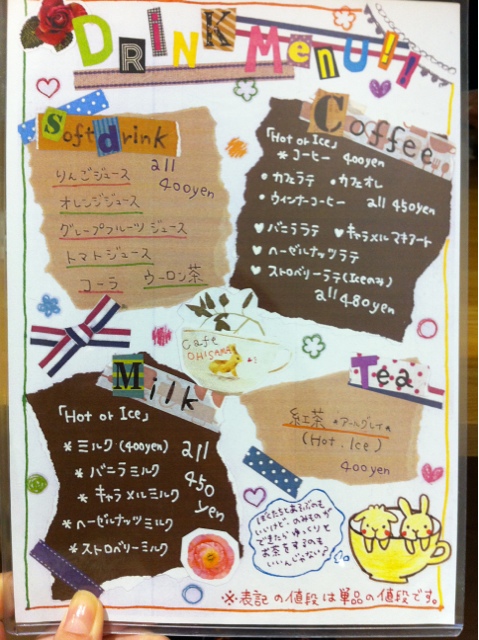 DRINK Menu!!
Soft drink
りんごジュース all 400yen
オレンジジュース
グレープフルーツ ジュース
トマトジュース
コーラ ウーロン茶
Coffee
「Hot or Ice」
* コーヒー 400yen
・カフェラテ ・カフェオレ
・ウィンナーコーヒー all 450yen
♥ バニララテ ♥ キャラメルマキアート
♥ ヘーゼルナッツラテ
♥ ストロベリーラテ(Iceのみ)
all 480yen
Cafe
OHISAMA
Milk
「Hot or Ice」
* ミルク (400yen) all 450 yen
* バニラミルク
* キャラメルミルク
* ヘーゼルナッツミルク
* ストロベリーミルク
Tea
紅茶 *アールグレイ*
(Hot. Ice)
400yen
ぼくたちとあそぶのも
いいけど…のみものが
できたら ゆっくりと
お茶をするのも
いいんじゃない?
※表記の値段は単品の値段です。